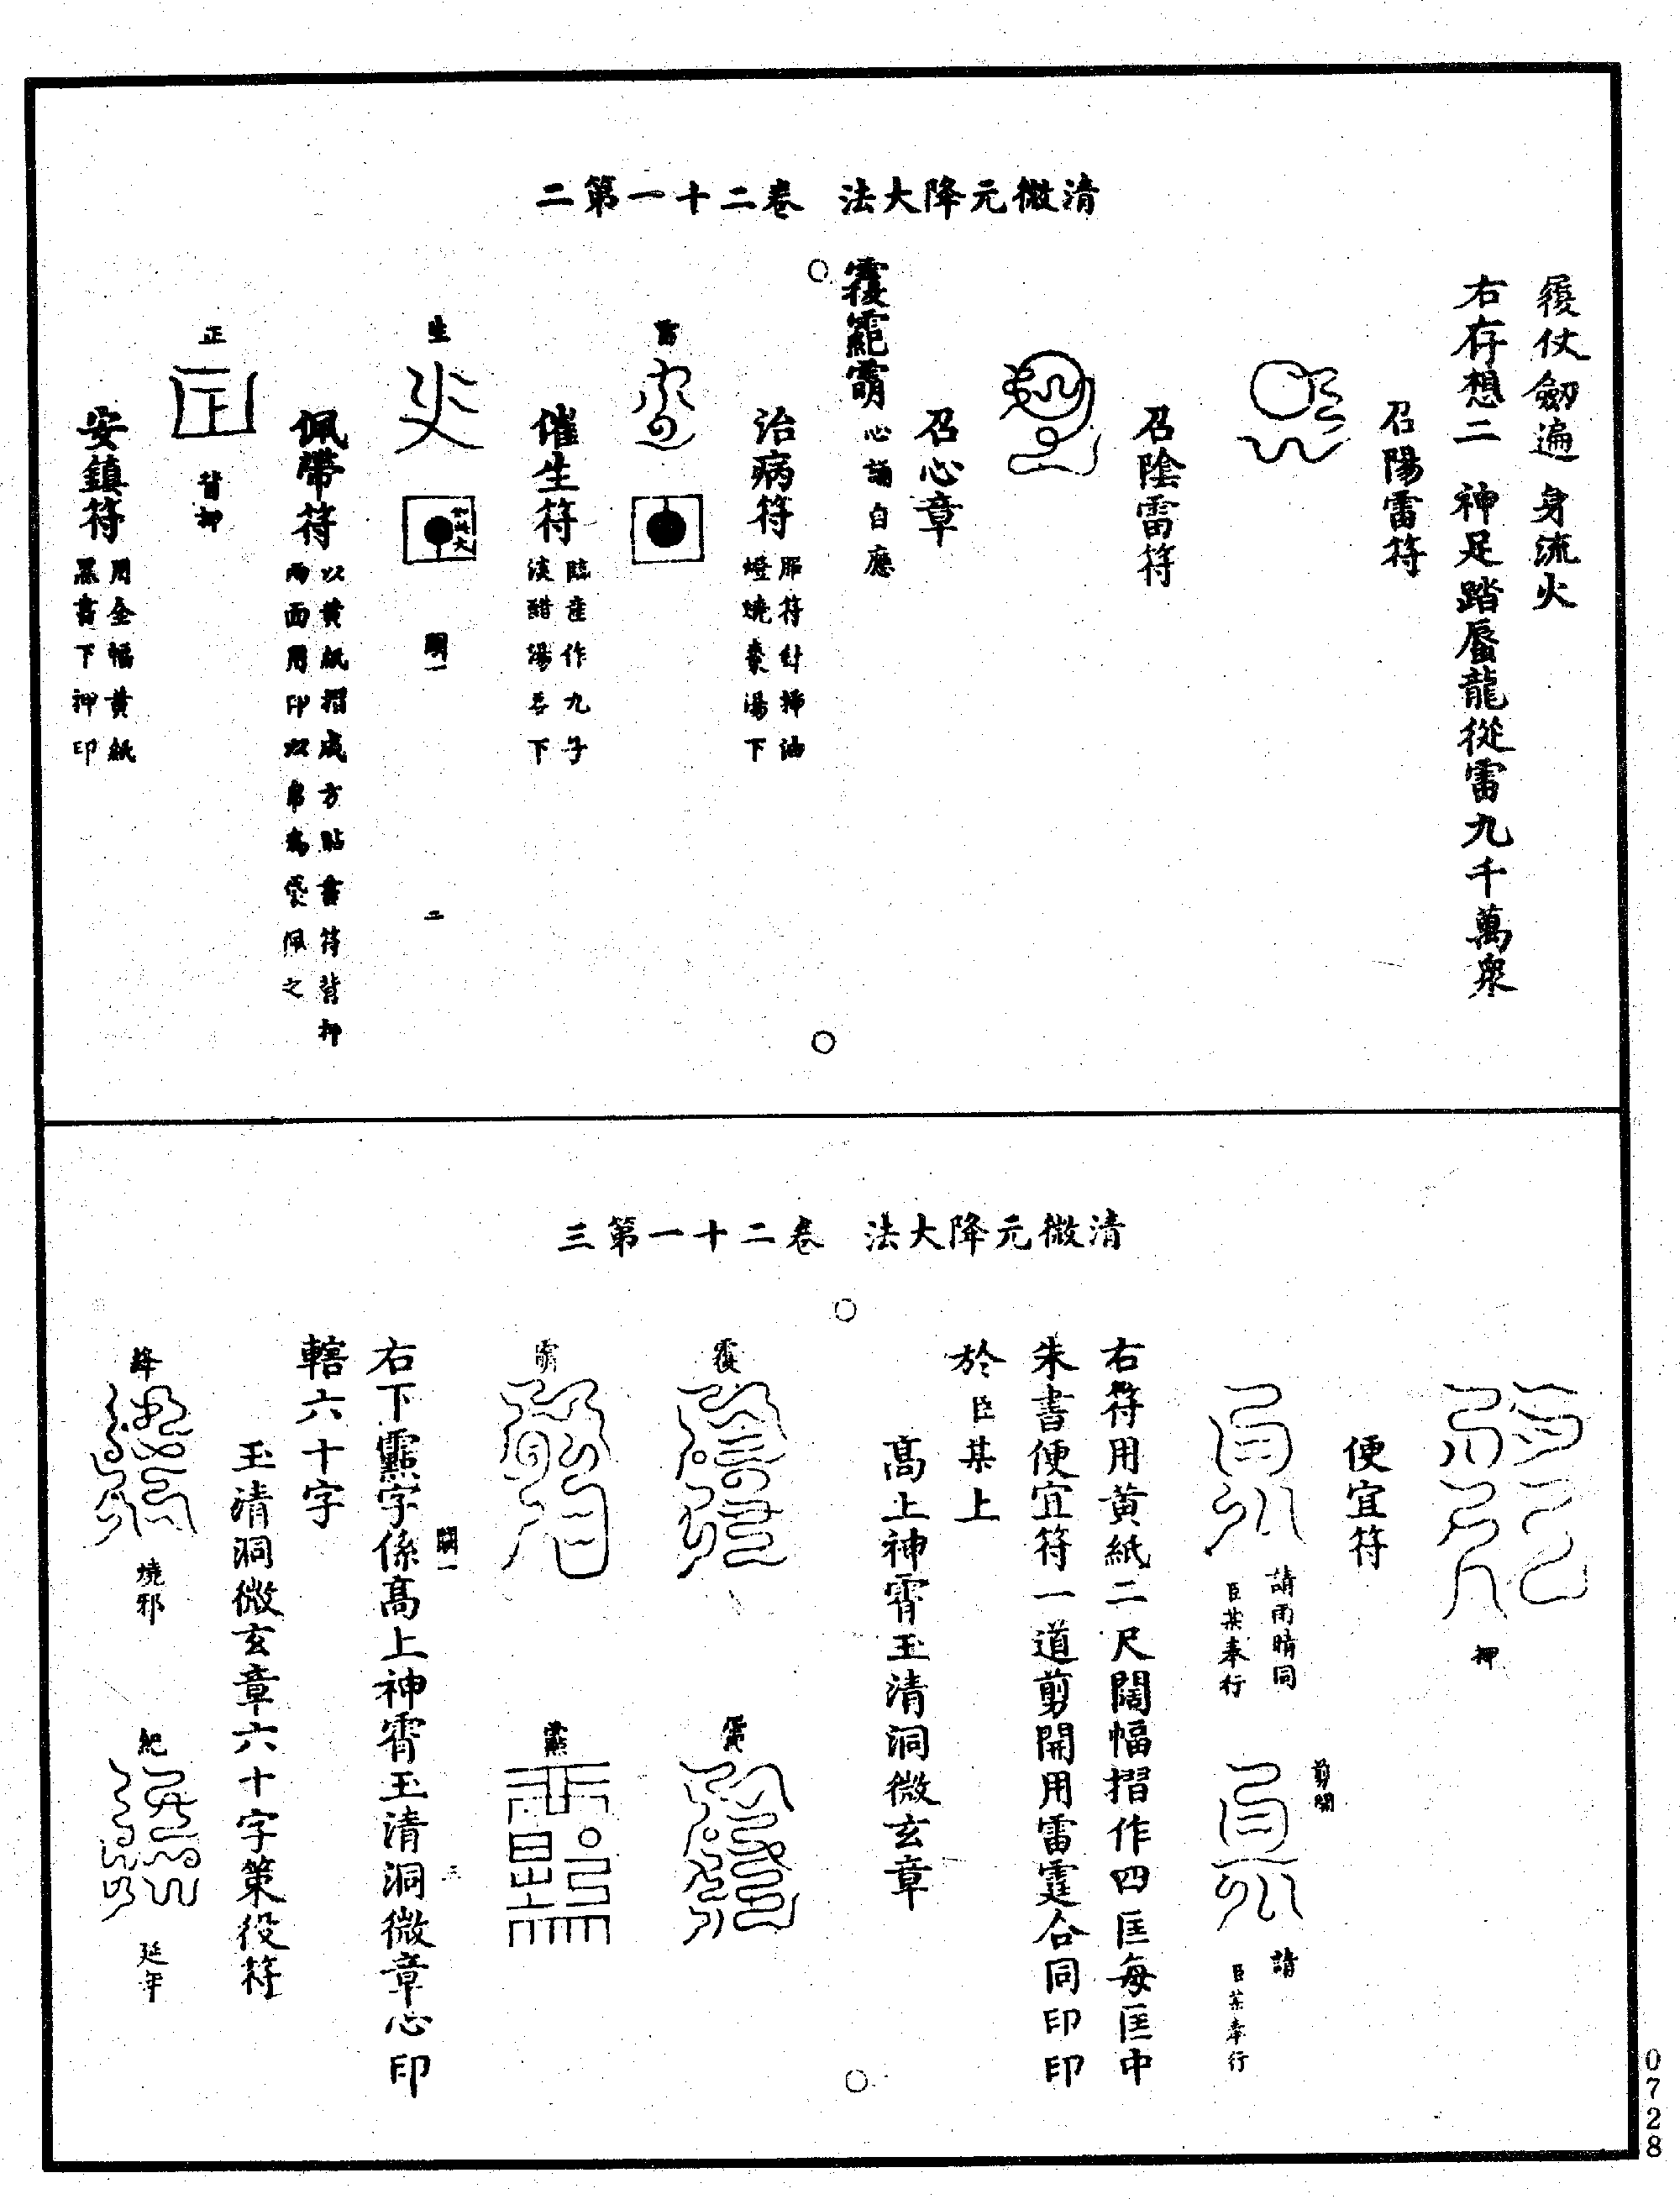 清微元降大法　卷二十一第二
履仗劒遍身流火
右存想二神足踏蜃龍從雷九千萬衆
召陽雷符
召陰雷符
召心章
心誦自應
治病符
服符針掃油
燈燒棗湯下
催生符
臨産作九子
淡醋湯吞下
生
明一
二
佩帶符
以黄紙摺成方貼書符背押
兩面用印以帛爲袋佩之
正
背押
安鎮符
用全幅黄紙
黑書下押印
清微元降大法　卷二十一第三
押
便宜符
請雨晴同
臣某奉行
剪開
請
臣某奉行
右符用黄紙二尺闊幅摺作四匡每匡中
朱書便宜符一道剪開用雷霆合同印印
於臣某上
高上神霄玉清洞微玄章
明一
三
右下靈字係高上神霄玉清洞微章心印
轄六十字
玉清洞微玄章六十字策役符
燒邪
延年
0728